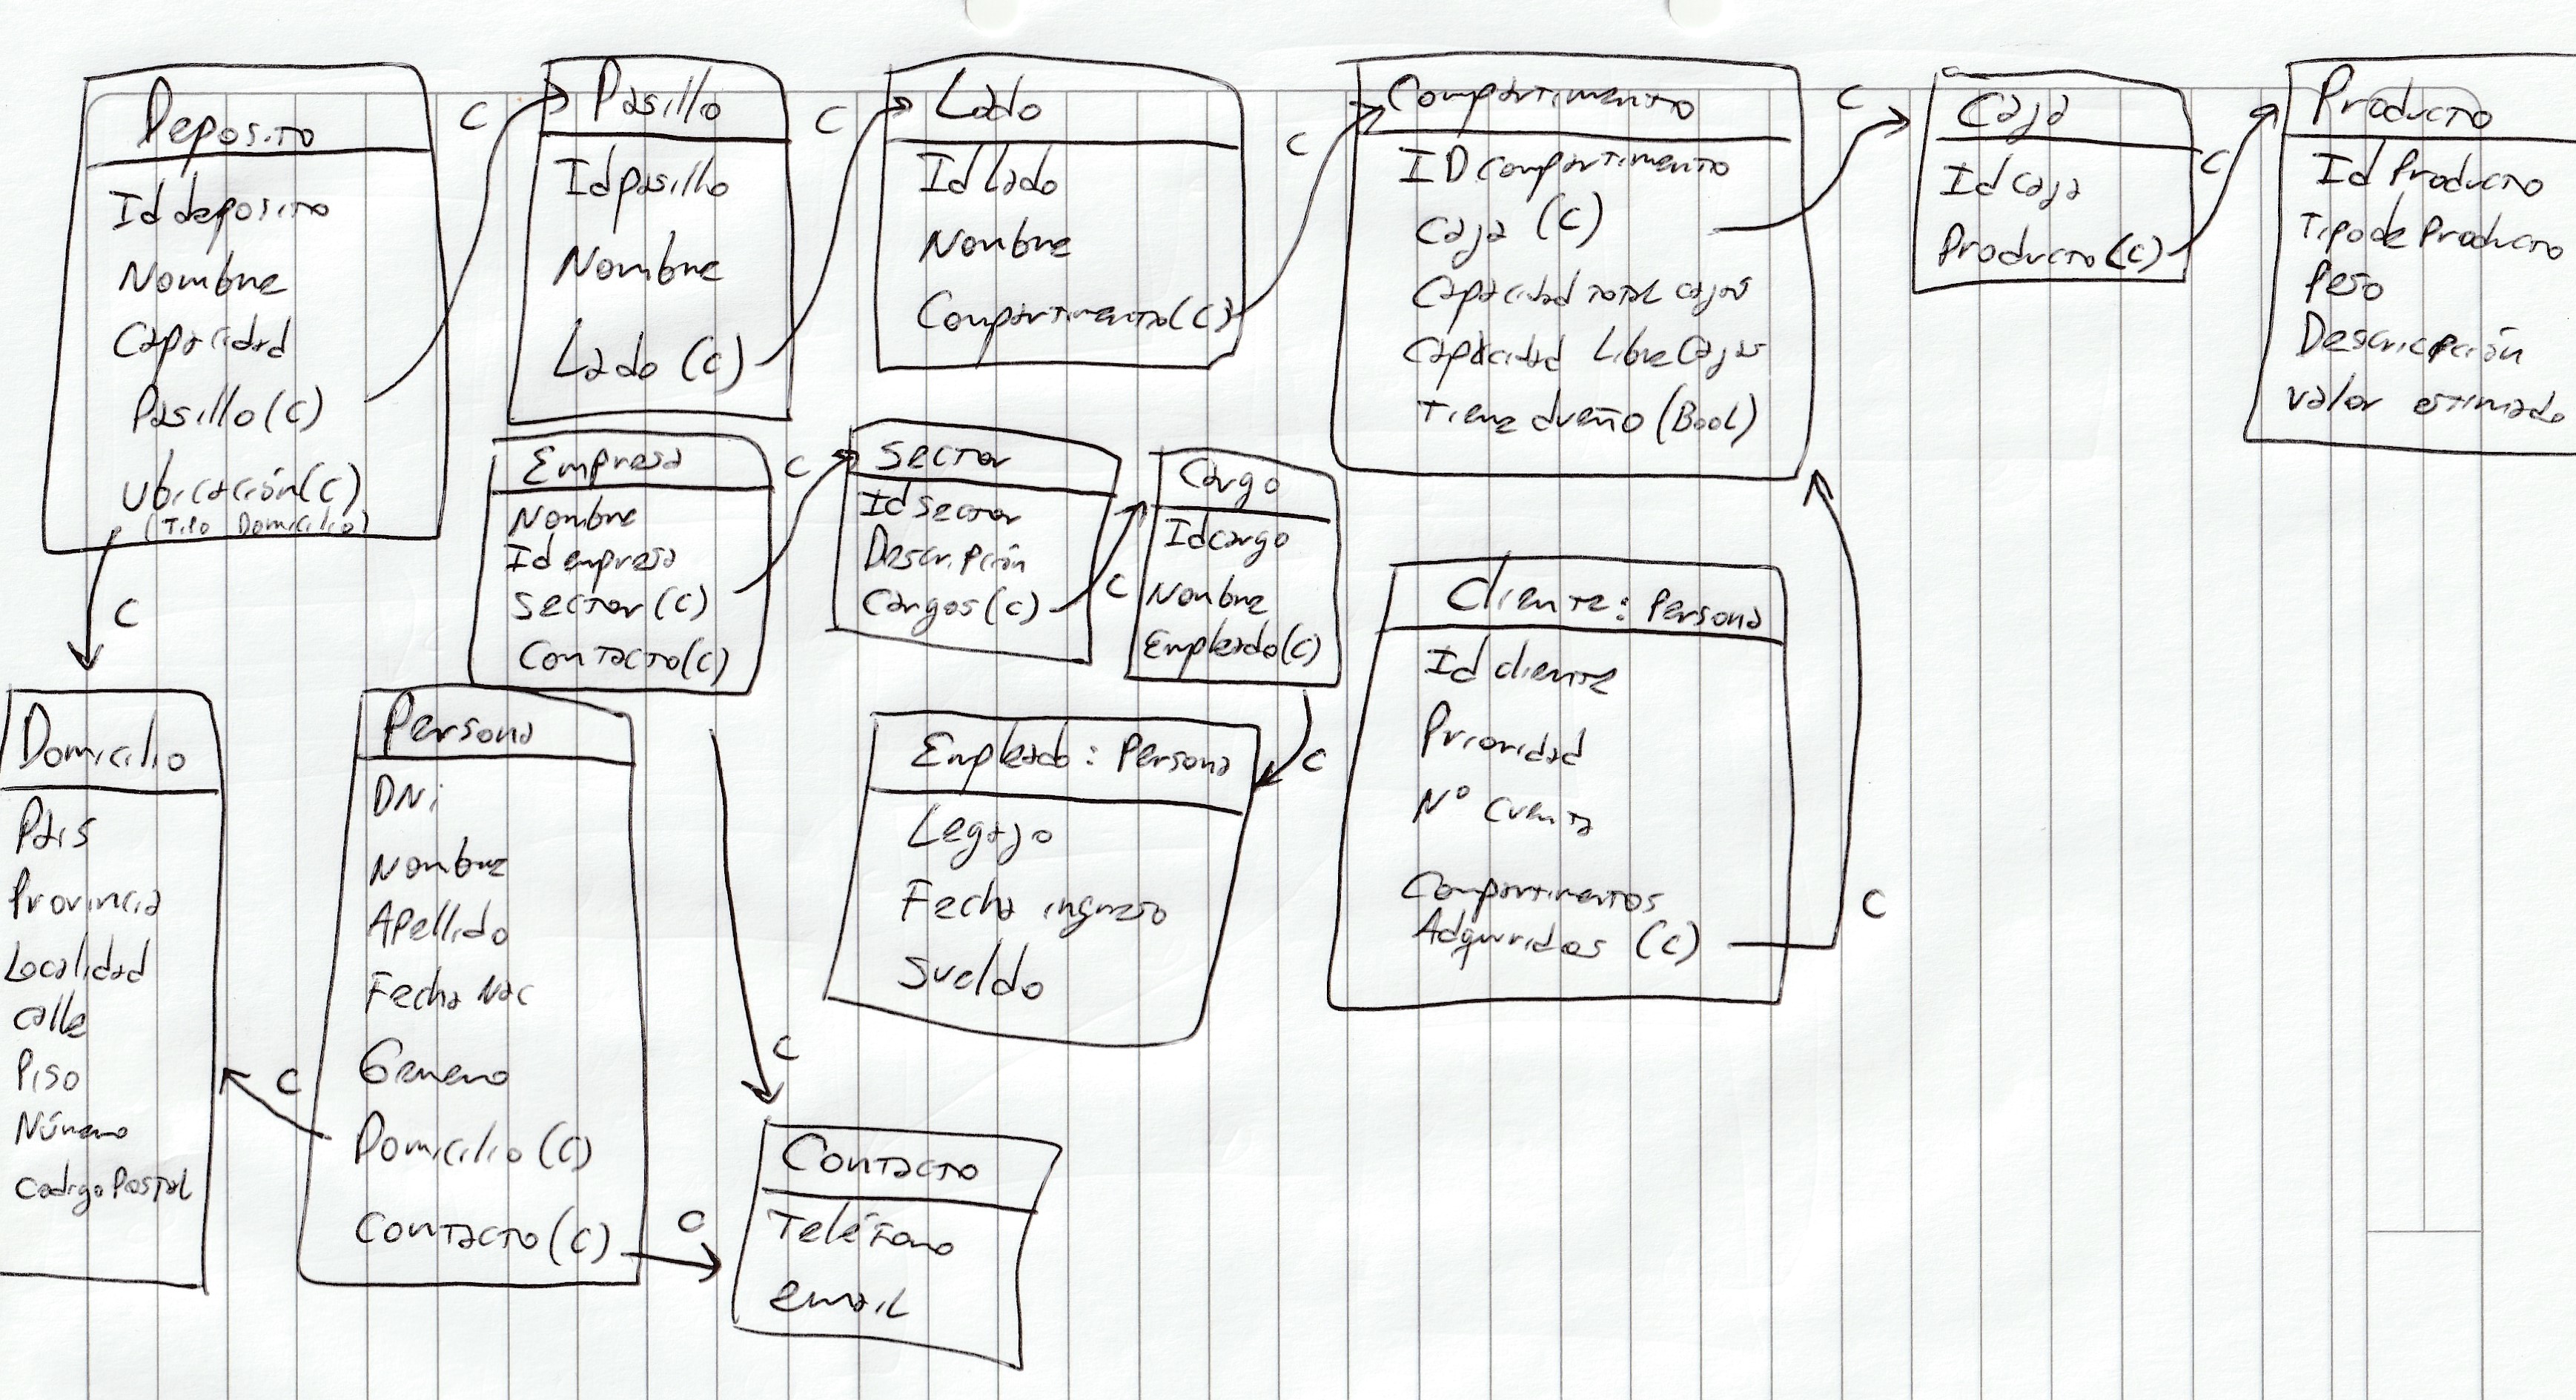 Deposito
Id deposito
Nombre
Capacidad
Pasillo (C)
Ubicación (C)
(Tipo Domicilio)
C
Pasillo
Id pasillo
Nombre
Lado (C)
C
Lado
Id Lado
Nombre
Compartimento (C)
C
Compartimento
ID compartimento
Caja (C)
Capacidad total cajas
Capacidad Libre Cajas
Tiene dueño (Bool)
C
Caja
Id caja
Producto (C)
C
Producto
Id Producto
Tipo de Producto
Peso
Descripción
valor estimado
Empresa
Nombre
Id empresa
Sector (C)
Contacto (C)
C
Sector
Id sector
Descripción
Cargos (C)
C
Cargo
Id cargo
Nombre
Empleado (C)
C
Cliente: Persona
Id cliente
Prioridad
N° Cuenta
Compartimentos
Adquiridos (C)
C
C
Domicilio
País
Provincia
Localidad
Calle
Piso
Número
Codigo Postal
Persona
DNi
Nombre
Apellido
Fecha Nac
Genero
Domicilio (C)
Contacto (C)
C
C
Empleado: Persona
Legajo
Fecha ingreso
Sueldo
C
Contacto
Teléfono
email